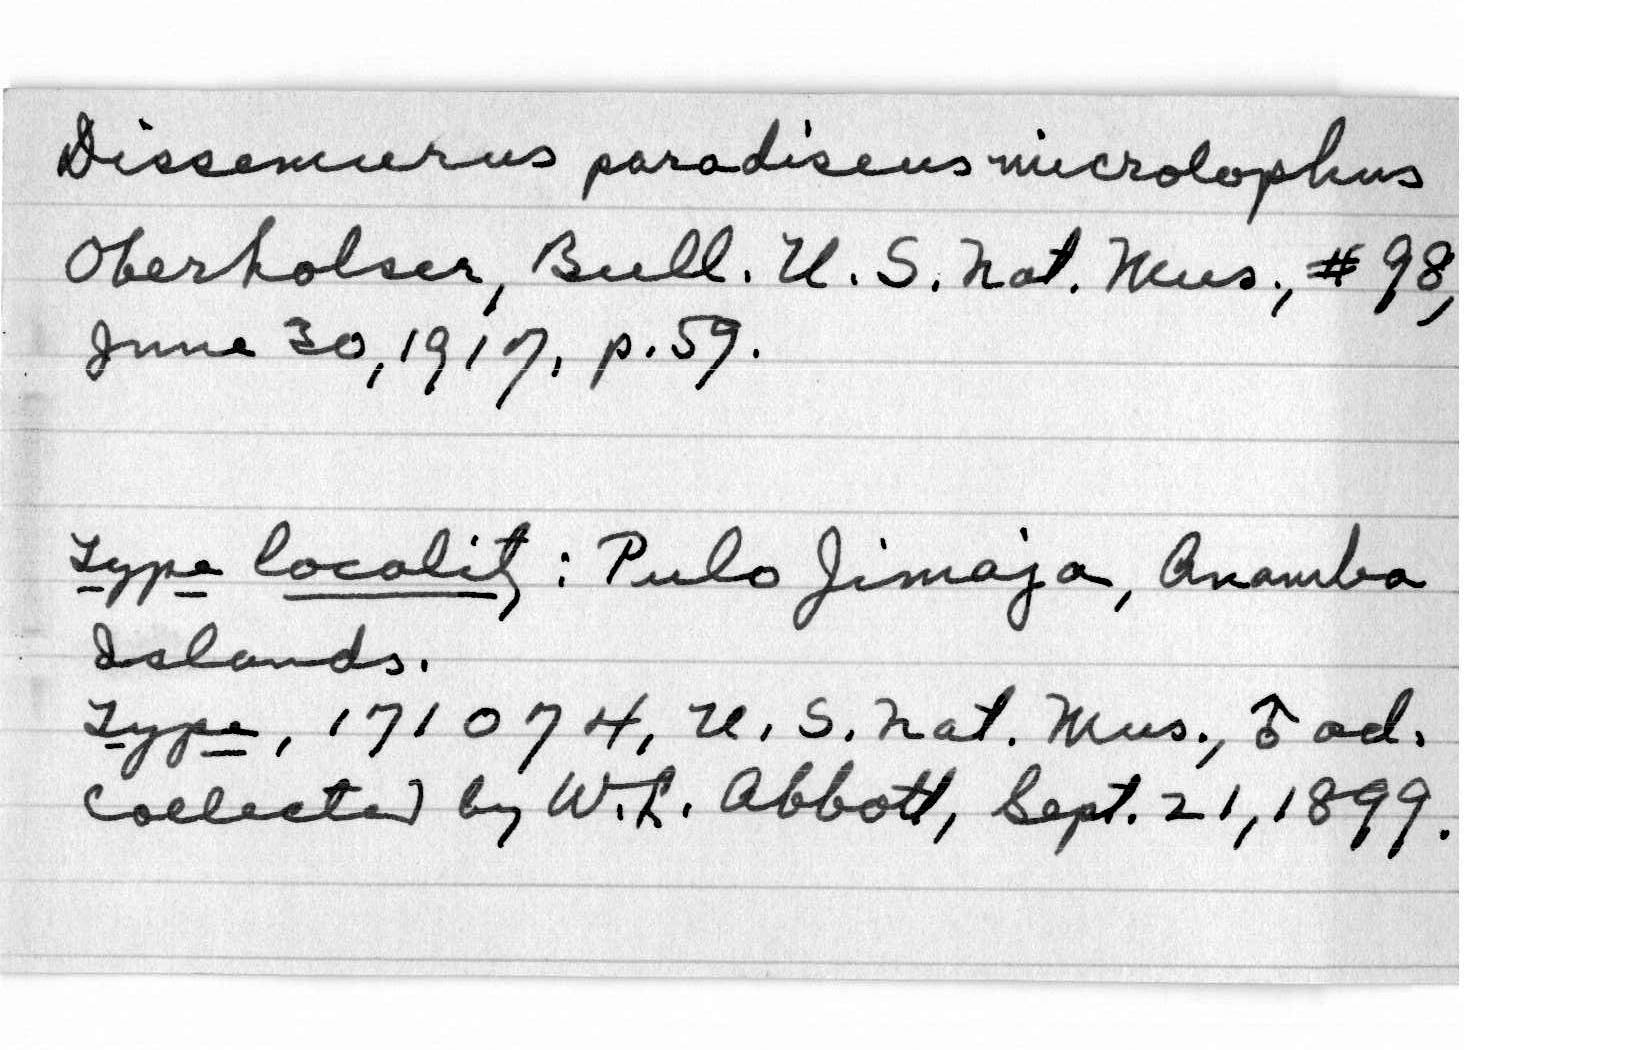 Dissemurus paradiseus microlophus
Oberholser, Bull. U. S. Nat. Mus., #98,
June 30, 1917, p. 59.
Type locality: Pulo Jimaja, Anamba
Islands.
Type, 171074, U. S. Nat. Mus., ♂ ad.
Collected by W. L. Abbott, Sept. 21, 1899.